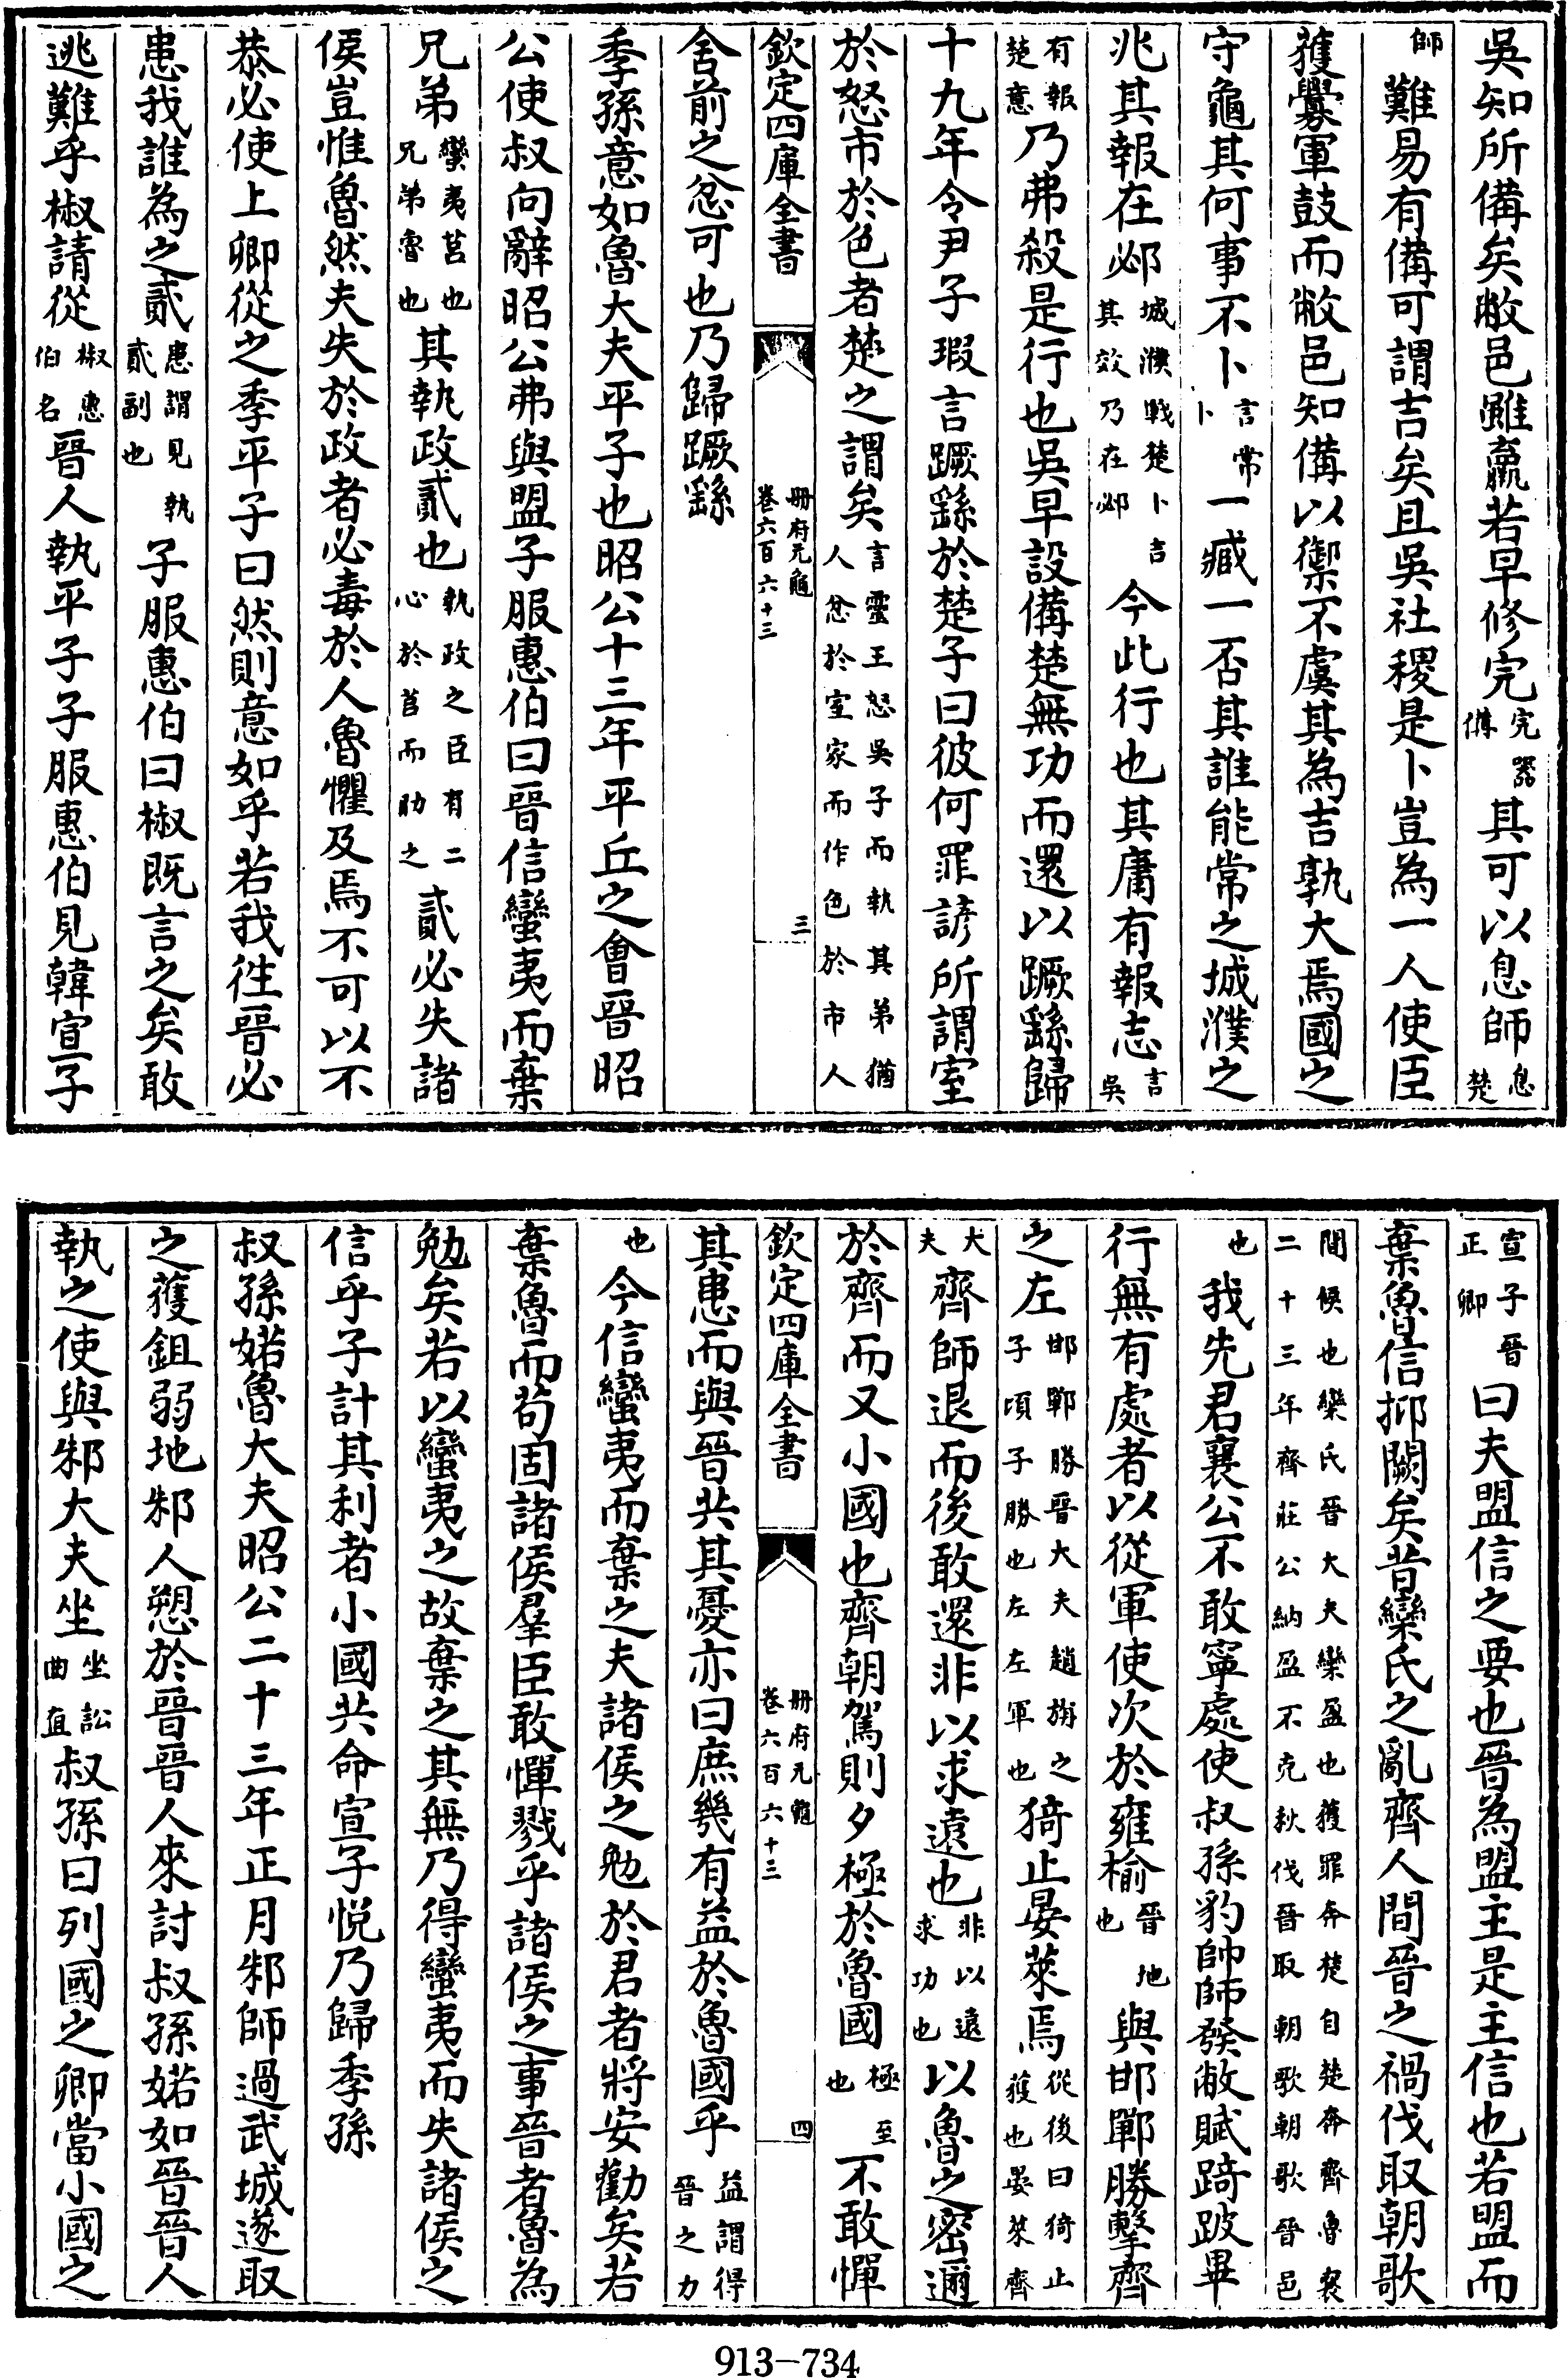 吳知所備矣敝邑雖羸若早修完完器備其可以息師息楚
師難易有備可謂吉矣且吳社稷是卜豈為一人使臣
獲釁軍鼓而敝邑知備以禦不虞其為吉孰大焉國之
守龜其何事不卜言常卜一臧一否其誰能常之城濮之
兆其報在邲城濮戰楚卜吉其效乃在邲今此行也其庸有報志言吳
有報楚意乃弗殺是行也吳早設備楚無功而還以蹶繇歸
十九年令尹子瑕言蹶繇於楚子曰彼何罪諺所謂室
於怒市於色者楚之謂矣言靈王怒吳子而執其弟猶人忿於室家而作色於市人
欽定四庫全書
冊府元龜
卷六百六十三
三
舍前之忿可也乃歸蹶繇
季孫意如魯大夫平子也昭公十三年平丘之會晉昭
公使叔向辭昭公弗與盟子服惠伯曰晉信蠻夷而棄
兄弟蠻夷莒也兄弟魯也其執政貳也執政之臣有二心於莒而助之貳必失諸
侯豈惟魯然夫失於政者必毒於人魯懼及焉不可以不
恭必使上卿從之季平子曰然則意如乎若我徃晉必
患我誰為之貳患謂見執貳副也子服惠伯曰椒既言之矣敢
逃難乎椒請從椒惠伯名晉人執平子子服惠伯見韓宣子
宣子晉正卿曰夫盟信之要也晉為盟主是主信也若盟而
棄魯信抑闕矣昔欒氏之亂齊人間晉之禍伐取朝歌
間候也欒氏晉大夫欒盈也獲罪奔楚自楚奔齊魯襄二十三年齊莊公納盈不克秋伐晉取朝歌朝歌晉邑
也我先君襄公不敢寧處使叔孫豹帥師發敝賦踦跛畢
行無有處者以從軍使次於雍榆晉地也與邯鄲勝擊齊
之左邯鄲勝晉大夫趙旃之子頃子勝也左左軍也掎止晏萊焉從後曰掎止獲也晏萊齊
大夫齊師退而後敢還非以求遠也非以遠求功也以魯之密邇
於齊而又小國也齊朝駕則夕極於魯國極至也不敢憚
欽定四庫全書
冊府元龜
卷六百六十三
四
其患而與晉共其憂亦曰庶幾有益於魯國乎益謂得晉之力
也今信蠻夷而棄之夫諸侯之勉於君者將安勸矣若
棄魯而苟固諸侯羣臣敢憚戮乎諸侯之事晉者魯為
勉矣若以蠻夷之故棄之其無乃得蠻夷而失諸侯之
信乎子計其利者小國共命宣子悅乃歸季孫
叔孫婼魯大夫昭公二十三年正月邾師過武城遂取
之獲鉏弱地邾人愬於晉晉人來討叔孫婼如晉晉人
執之使與邾大夫坐坐訟曲直叔孫曰列國之卿當小國之
913-734